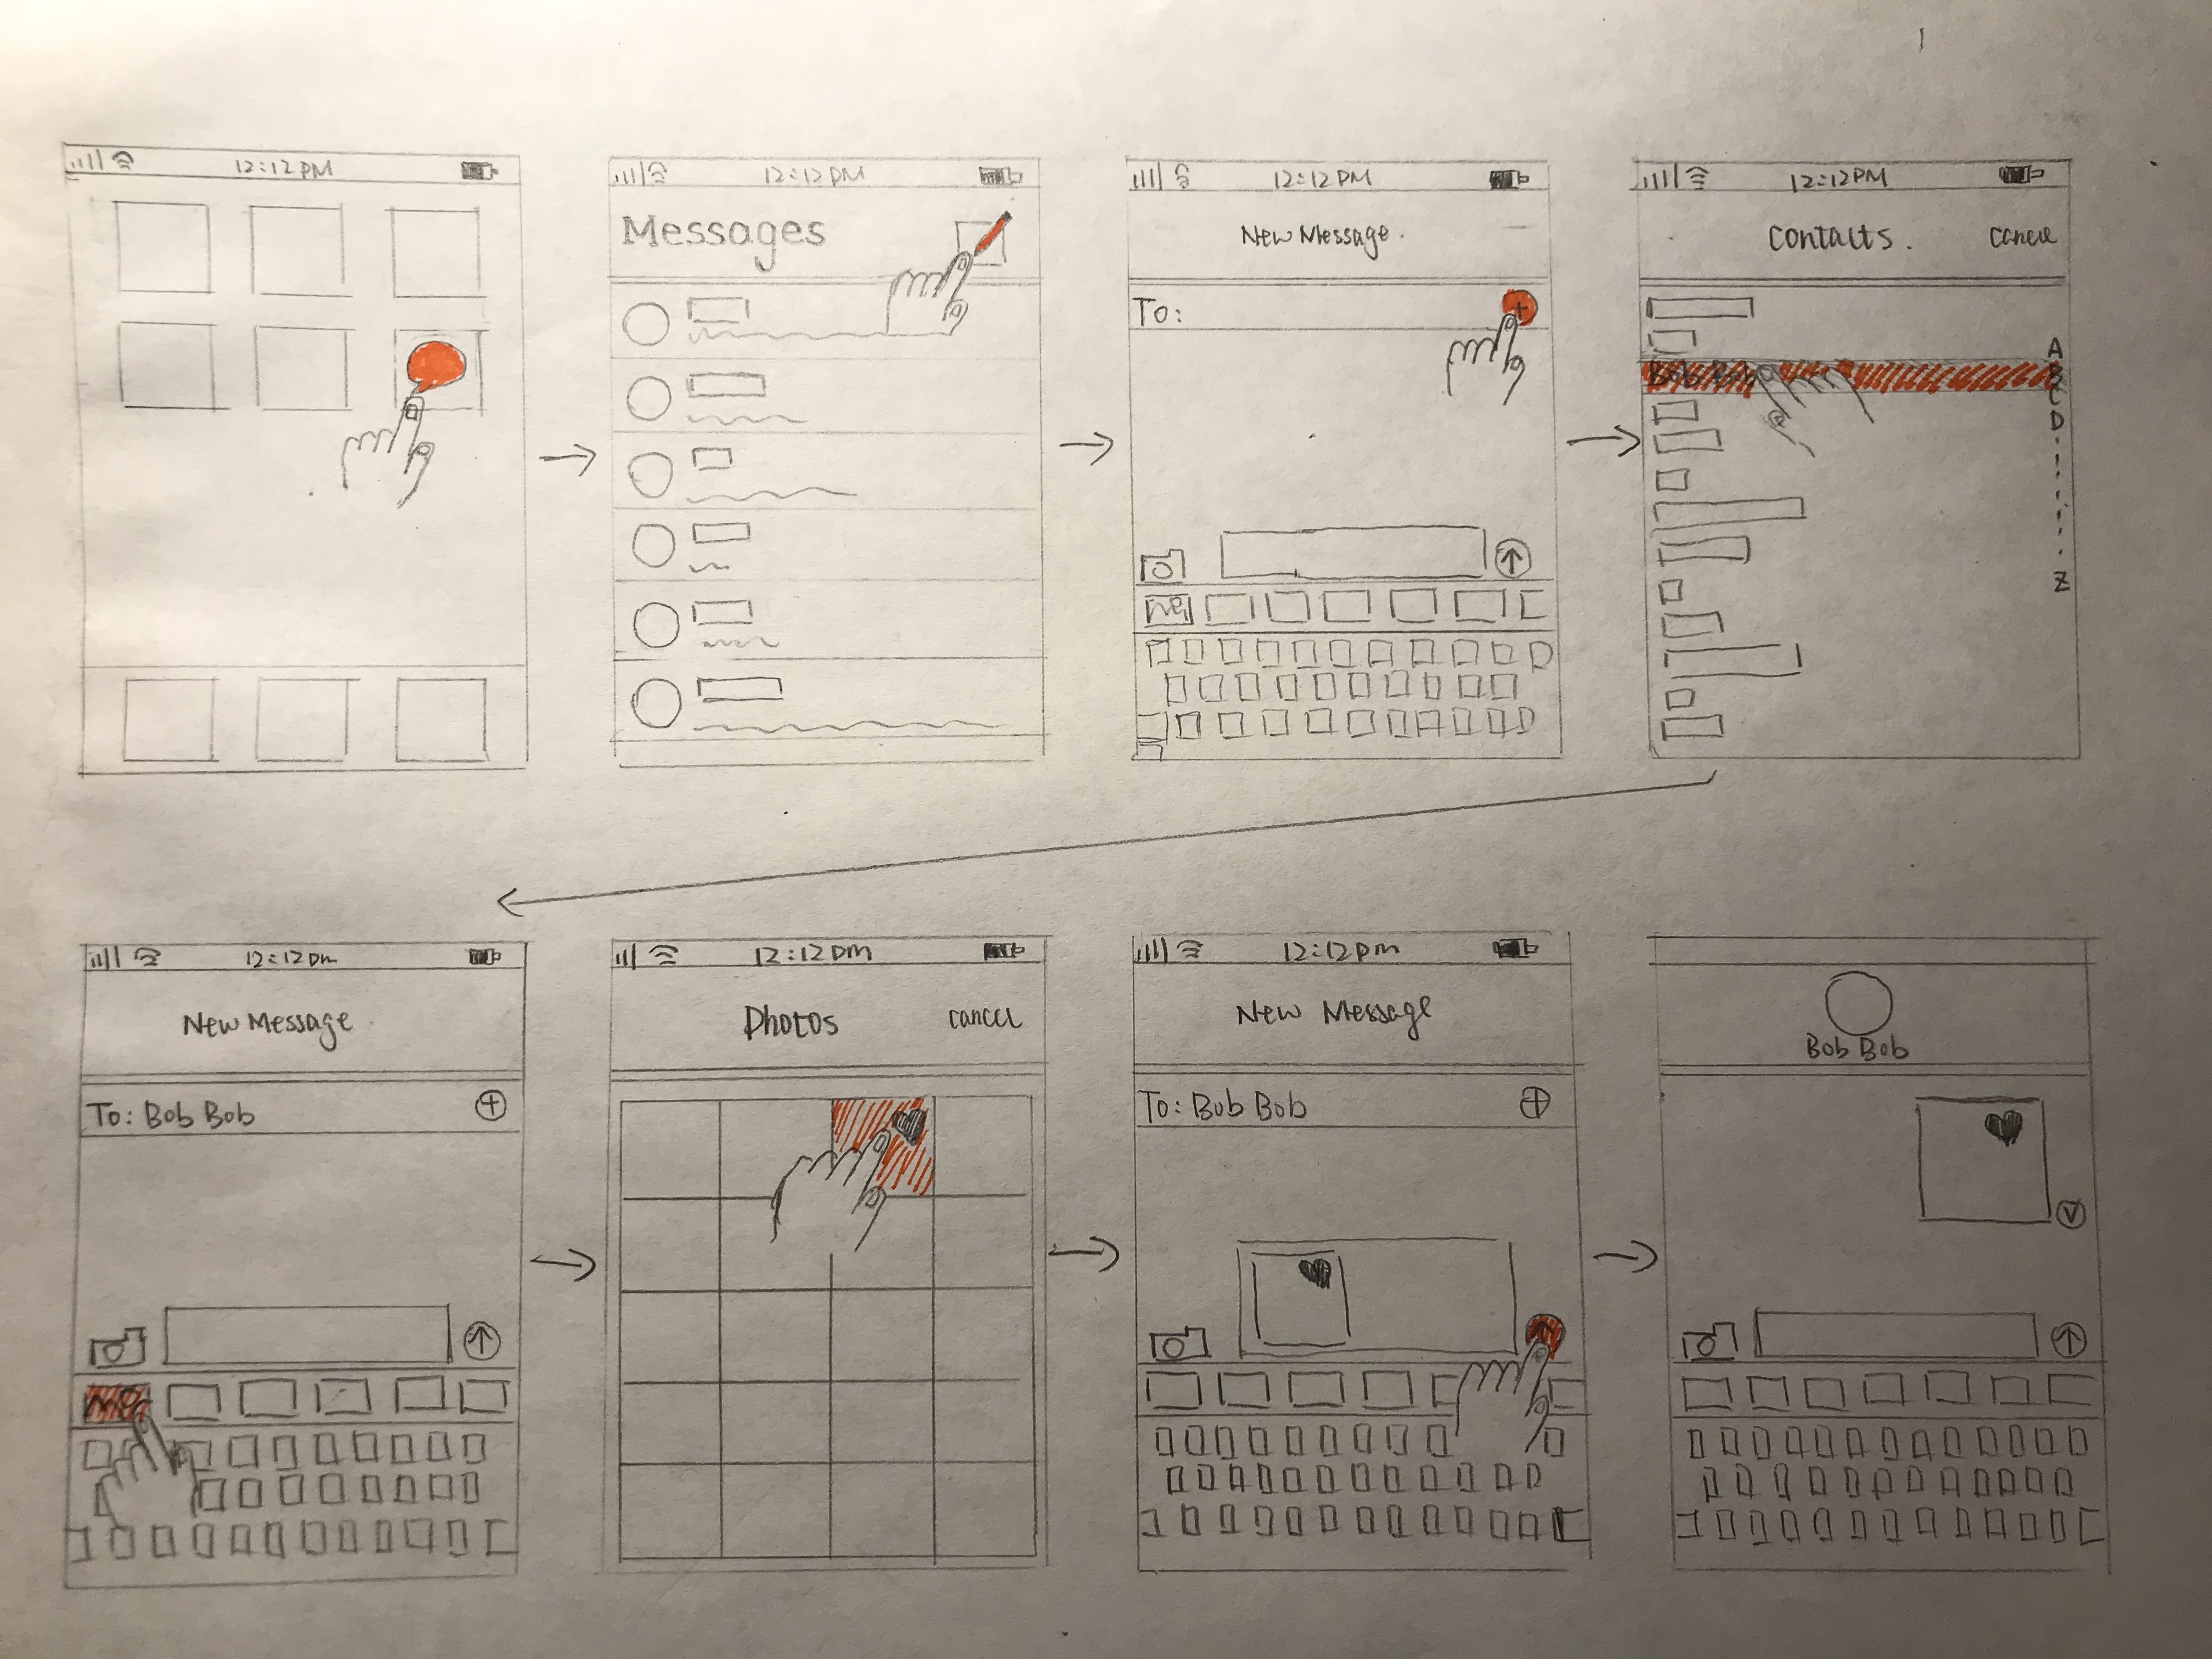 12:12 PM
12:12 PM
Messages
12:12 PM
New Message.
To:
+
12:12 PM
Contacts.
Cancel
A
Bob Bob
B
C
D
Z
12:12 PM
New Message
To: Bob Bob
+
12:12 PM
Photos
Cancel
12:12 PM
New Message
To: Bob Bob
+
Bob Bob